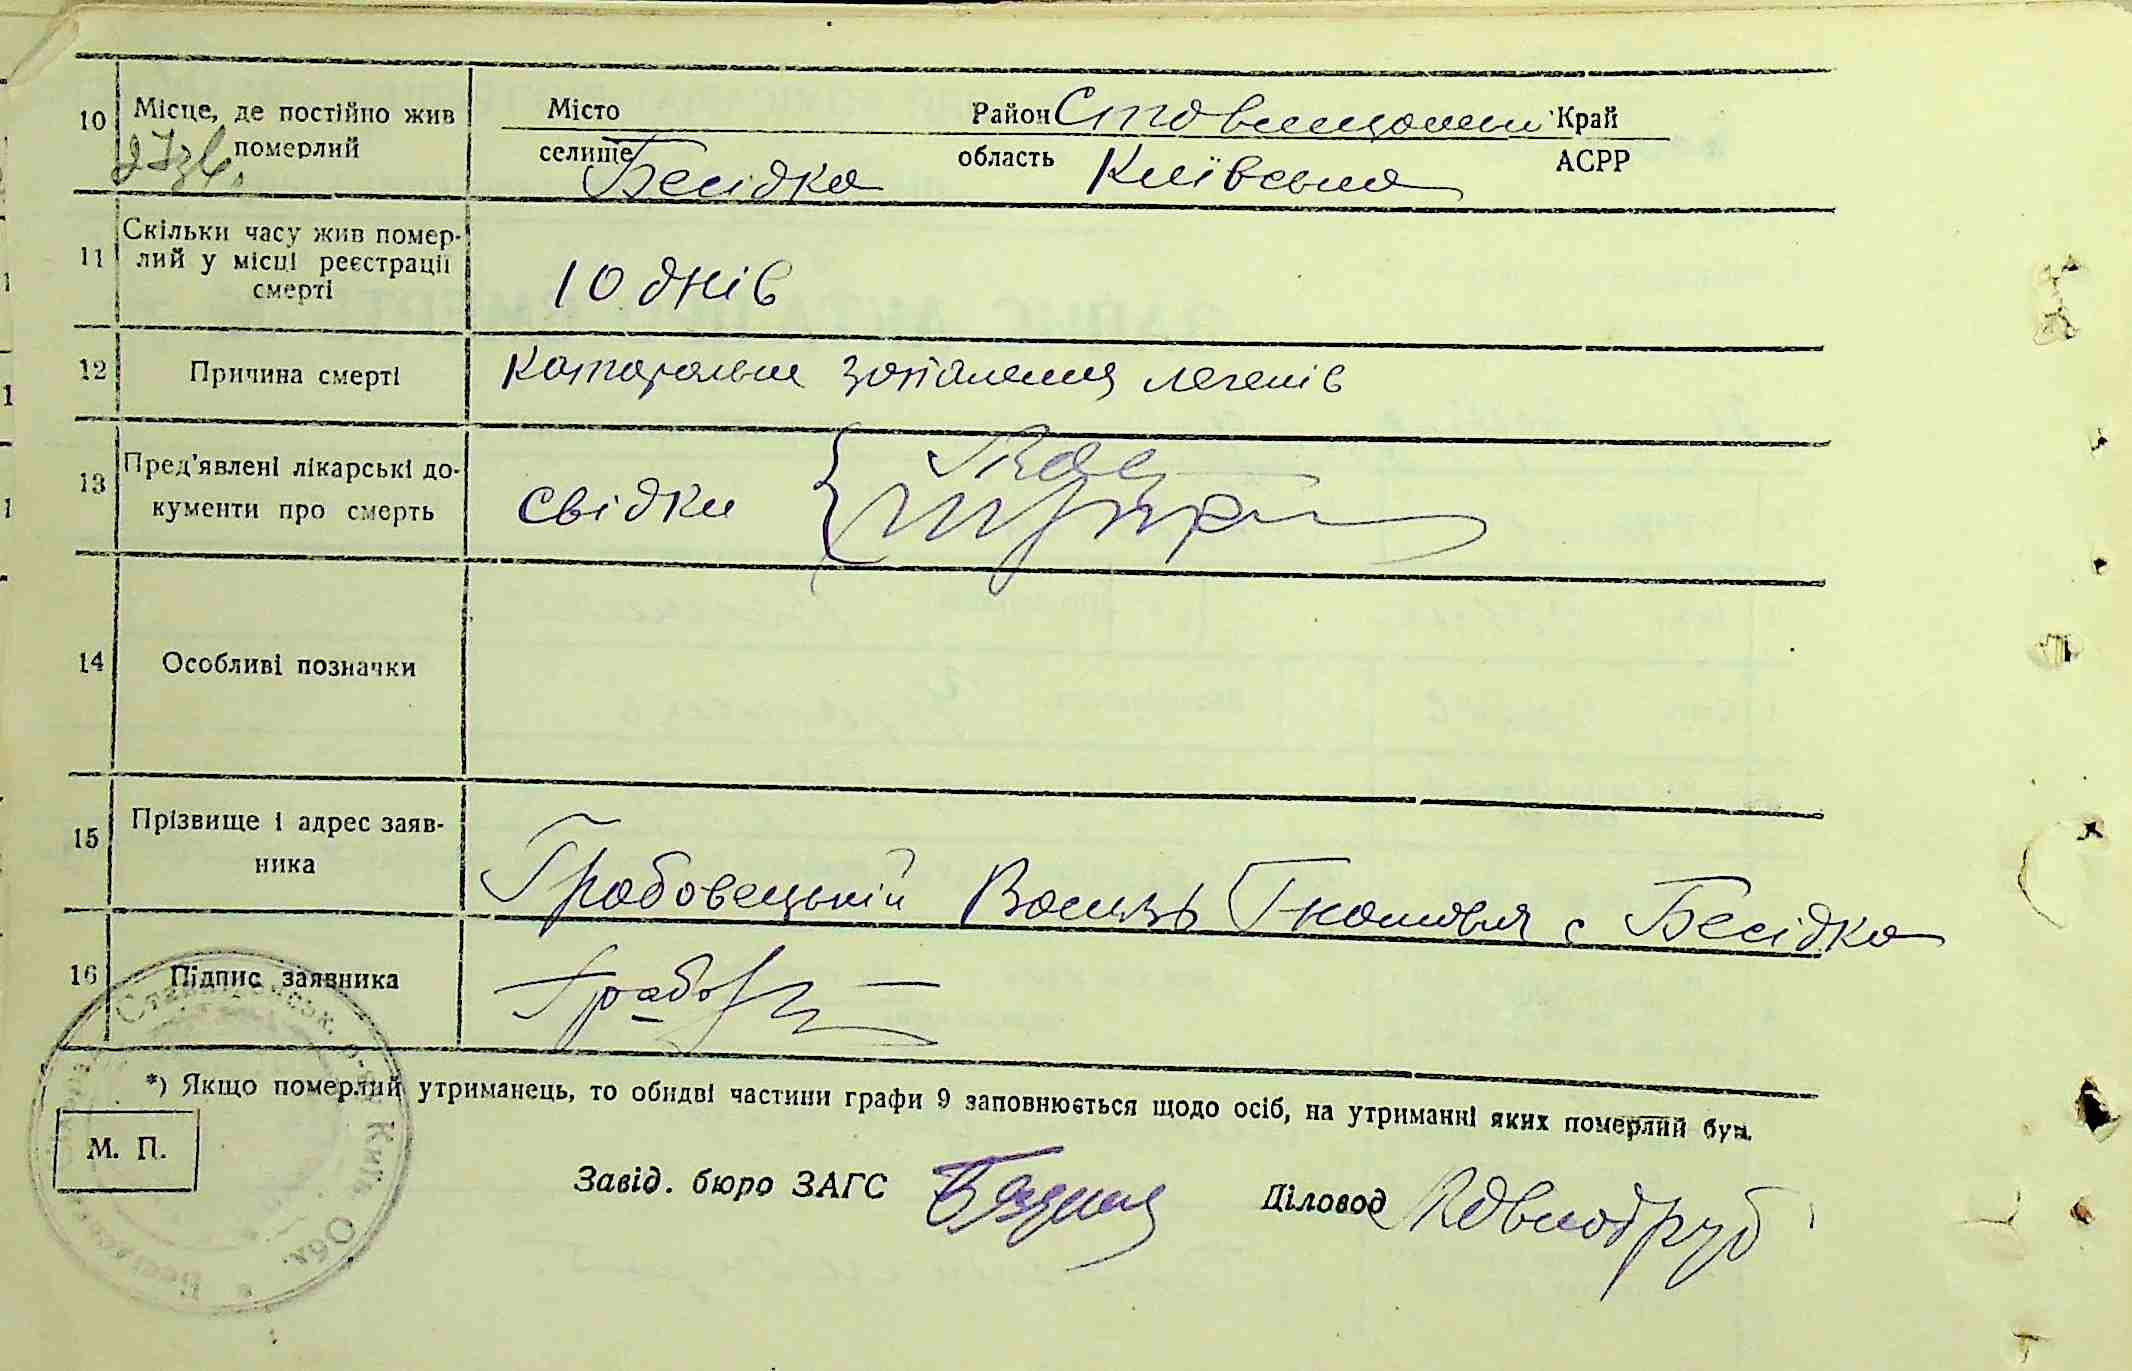 10 Місце, де постійно жив померлий
Місто Район Ставищанський Край
селище Бесідка область Київська АСРР
11 Скільки часу жив помер-
лий у місці реєстрації
смерті
10 днів
12 Причина смерті
Катаральне запалення легенів
13 Пред'явлені лікарські до-
кументи про смерть
свідки
14 Особливі позначки
15 Прізвище і адрес заяв-
ника
Грабовецький Василь Гнатович с Бесідка
16 Підпис заявника
*) Якщо померлий утриманець, то обидві частини графи 9 заповнюється щодо осіб, на утриманні яких померлий був.
М. П.
Завід. бюро ЗАГС
Діловод